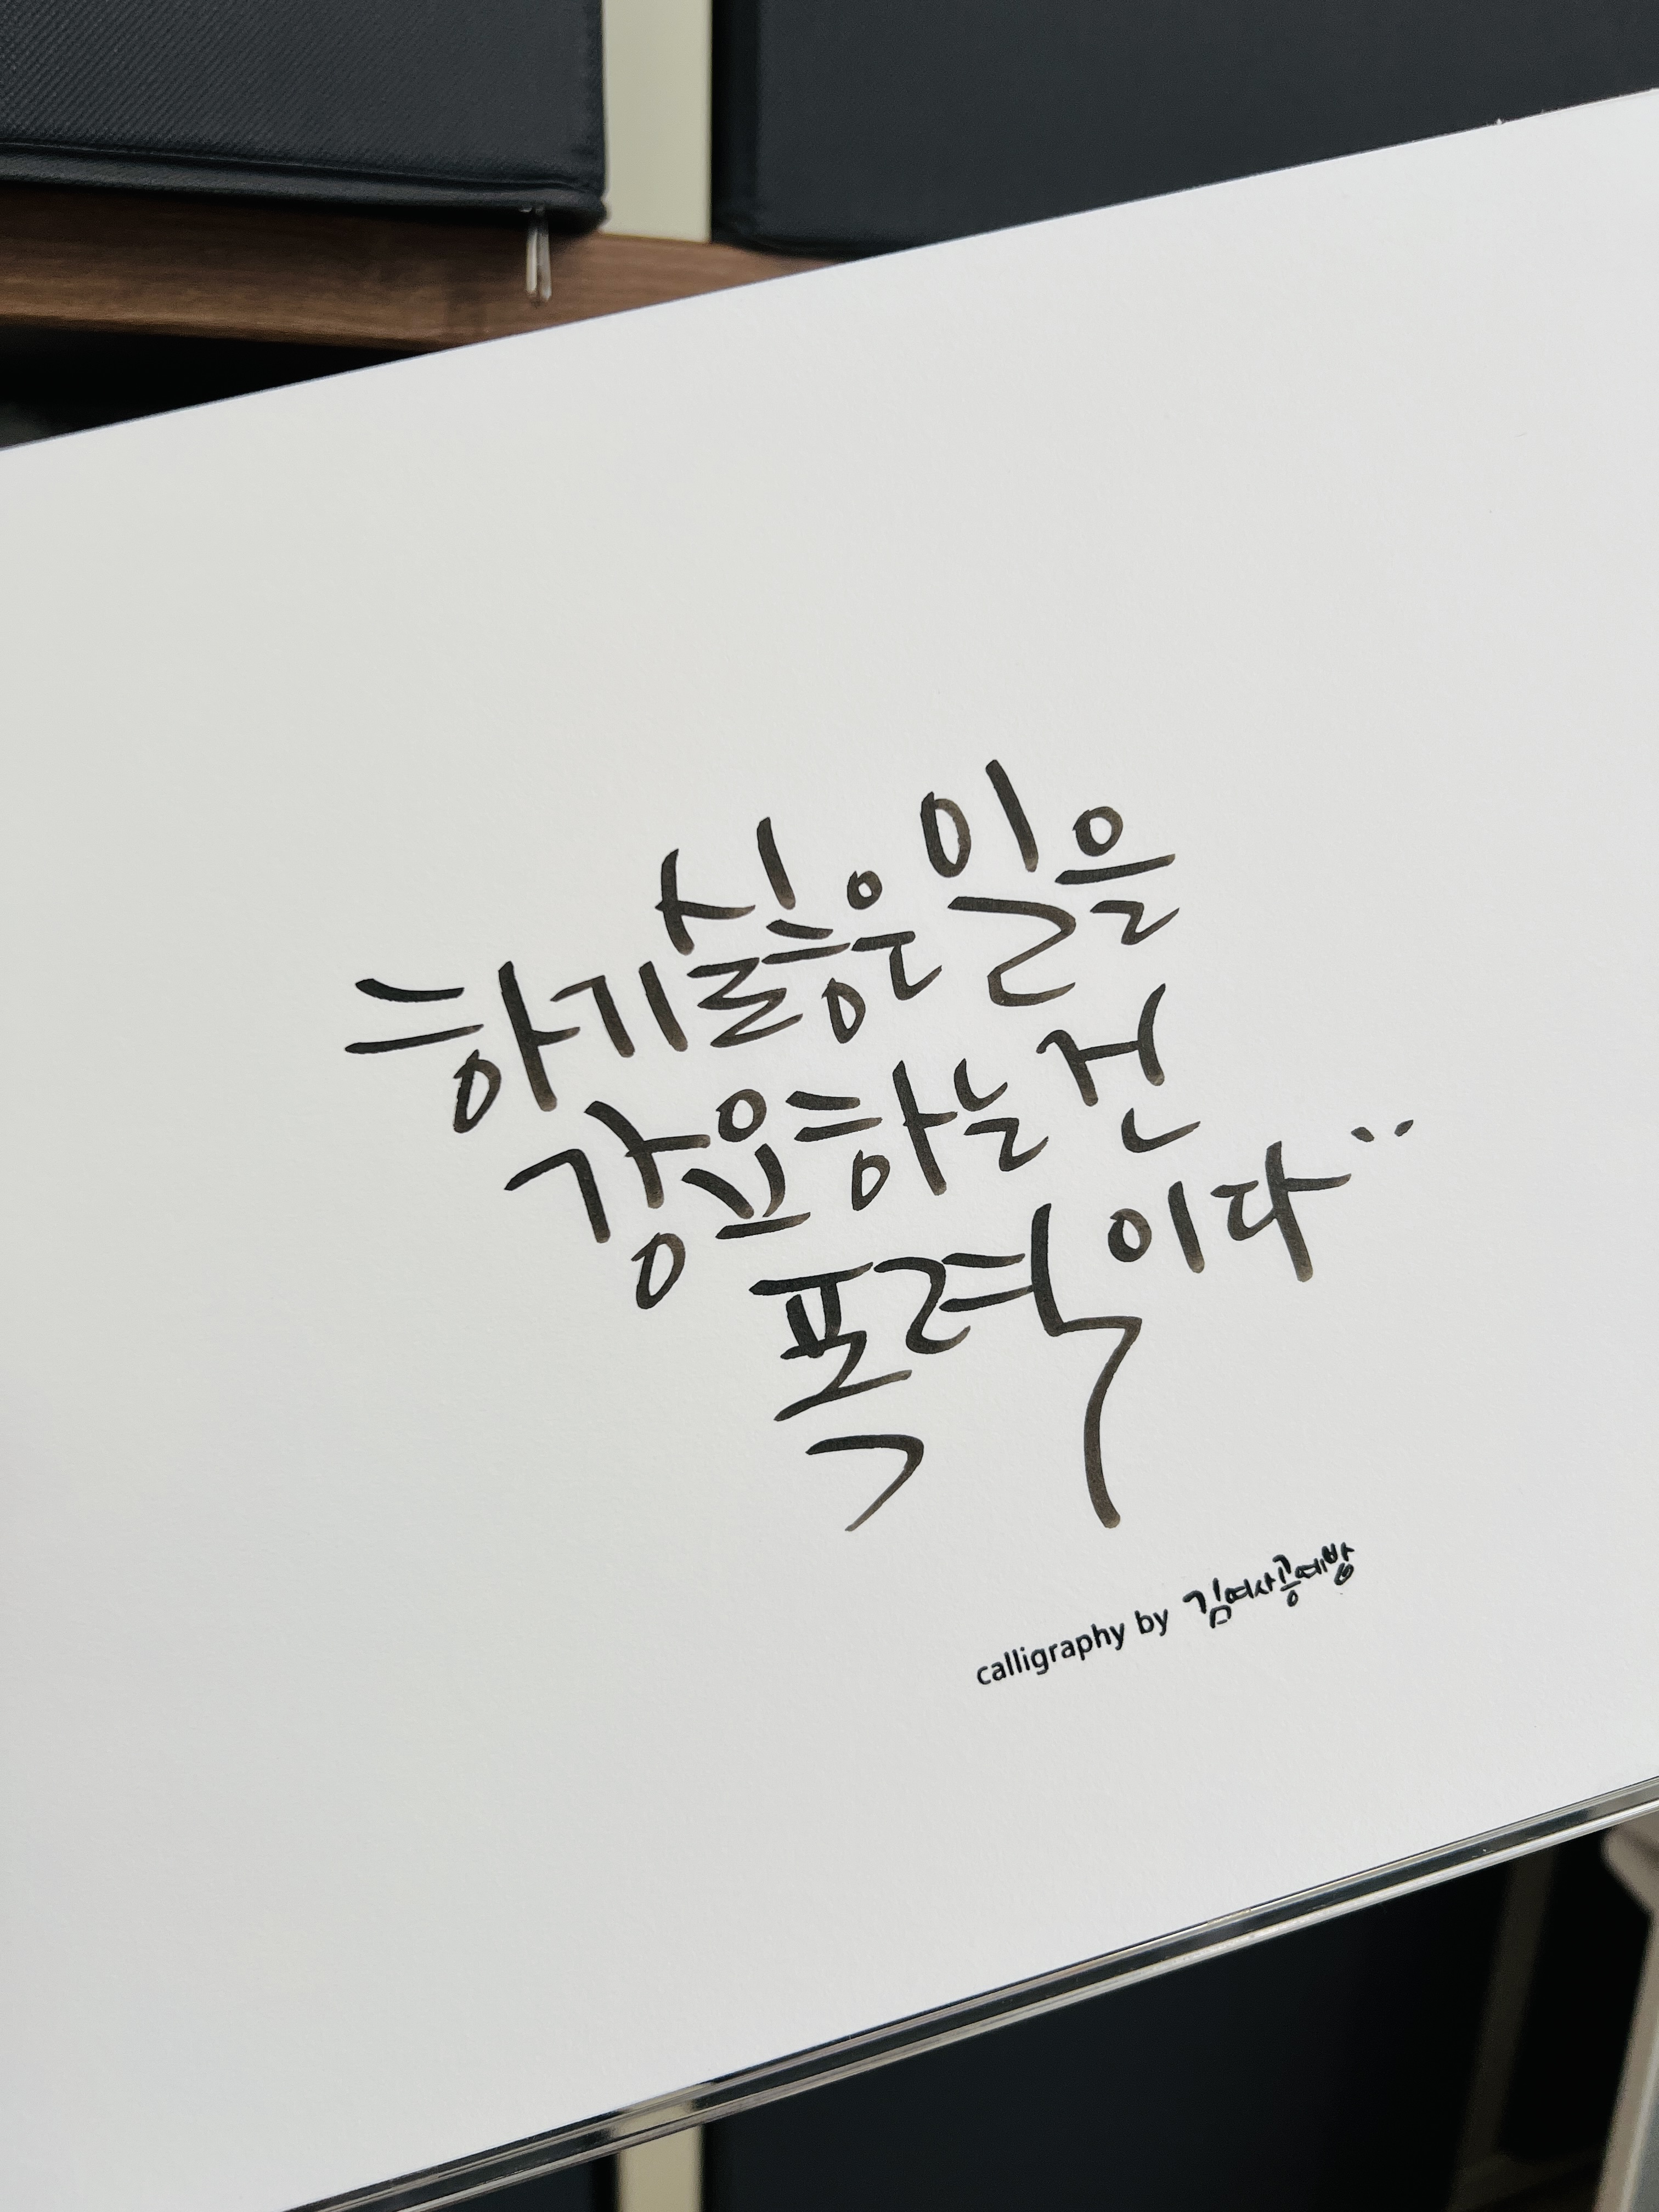 하기싫은 일을
강요하는 건
폭력이다..
calligraphy by 김여사공예방